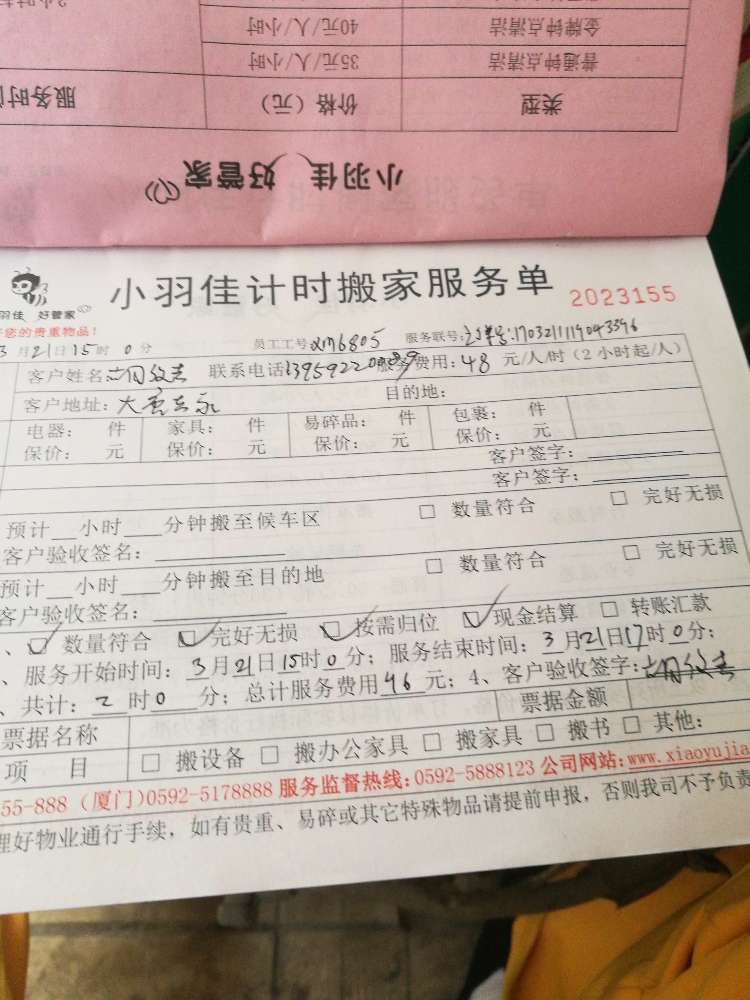 2小时起
金牌钟点清洁 40元/人/小时
普通钟点清洁 35元/人/小时
类型 价格（元） 服务时
小羽佳 好管家
小羽佳计时搬家服务单 2023155
羽佳 好管家
您的贵重物品！
3月21日15时0分 员工工号:xm6805 服务联号:订单号:1703211119043396
客户姓名: 联系电话:13959220089 服务费用:48 元/人/时（2小时起/人）
客户地址: 目的地:
电器: 件 家具: 件 易碎品: 件 包裹: 件
保价: 元 保价: 元 保价: 元 保价: 元
客户签字:
客户签字:
预计__小时___分钟搬至候车区 □ 数量符合 □ 完好无损
客户验收签名:
预计__小时___分钟搬至目的地 □ 数量符合 □ 完好无损
客户验收签名:
、☑ 数量符合 ☑ 完好无损 ☑ 按需归位 ☑ 现金结算 □ 转账汇款
、服务开始时间: 3月21日15时0分; 服务结束时间: 3月21日17时0分;
、共计: 2 时0 分; 总计服务费用96 元; 4、客户验收签字:
票据名称 票据金额
项 目 □ 搬设备 □ 搬办公家具 □ 搬家具 □ 搬书 □ 其他:
55-888（厦门)0592-5178888 服务监督热线:0592-5888123 公司网站:www.xiaoyujia
理好物业通行手续，如有贵重、易碎或其它特殊物品请提前申报，否则我司不予负责